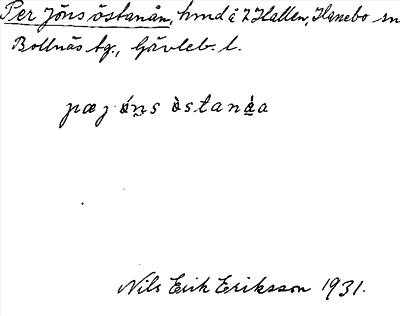 Per Jöns östanån, hmd å 7 Hallen, Hanebo sn
Bollnäs tg., Gävleb. l.
pæj ó̱n̠s òstanà̱a
Nils Erik Eriksson 1931.